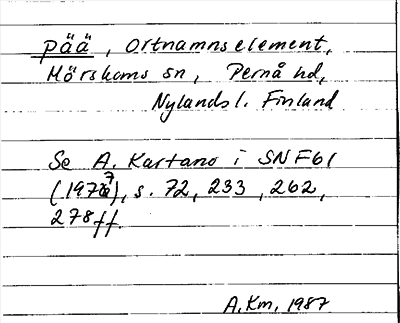 pää, Ortnamnselement,
Mörskoms sn, Pernå hd,
Nylands l. Finland
Se A. Kartano i SNF61
(1977), s. 72, 233, 262,
278ff.
A.Km, 1987